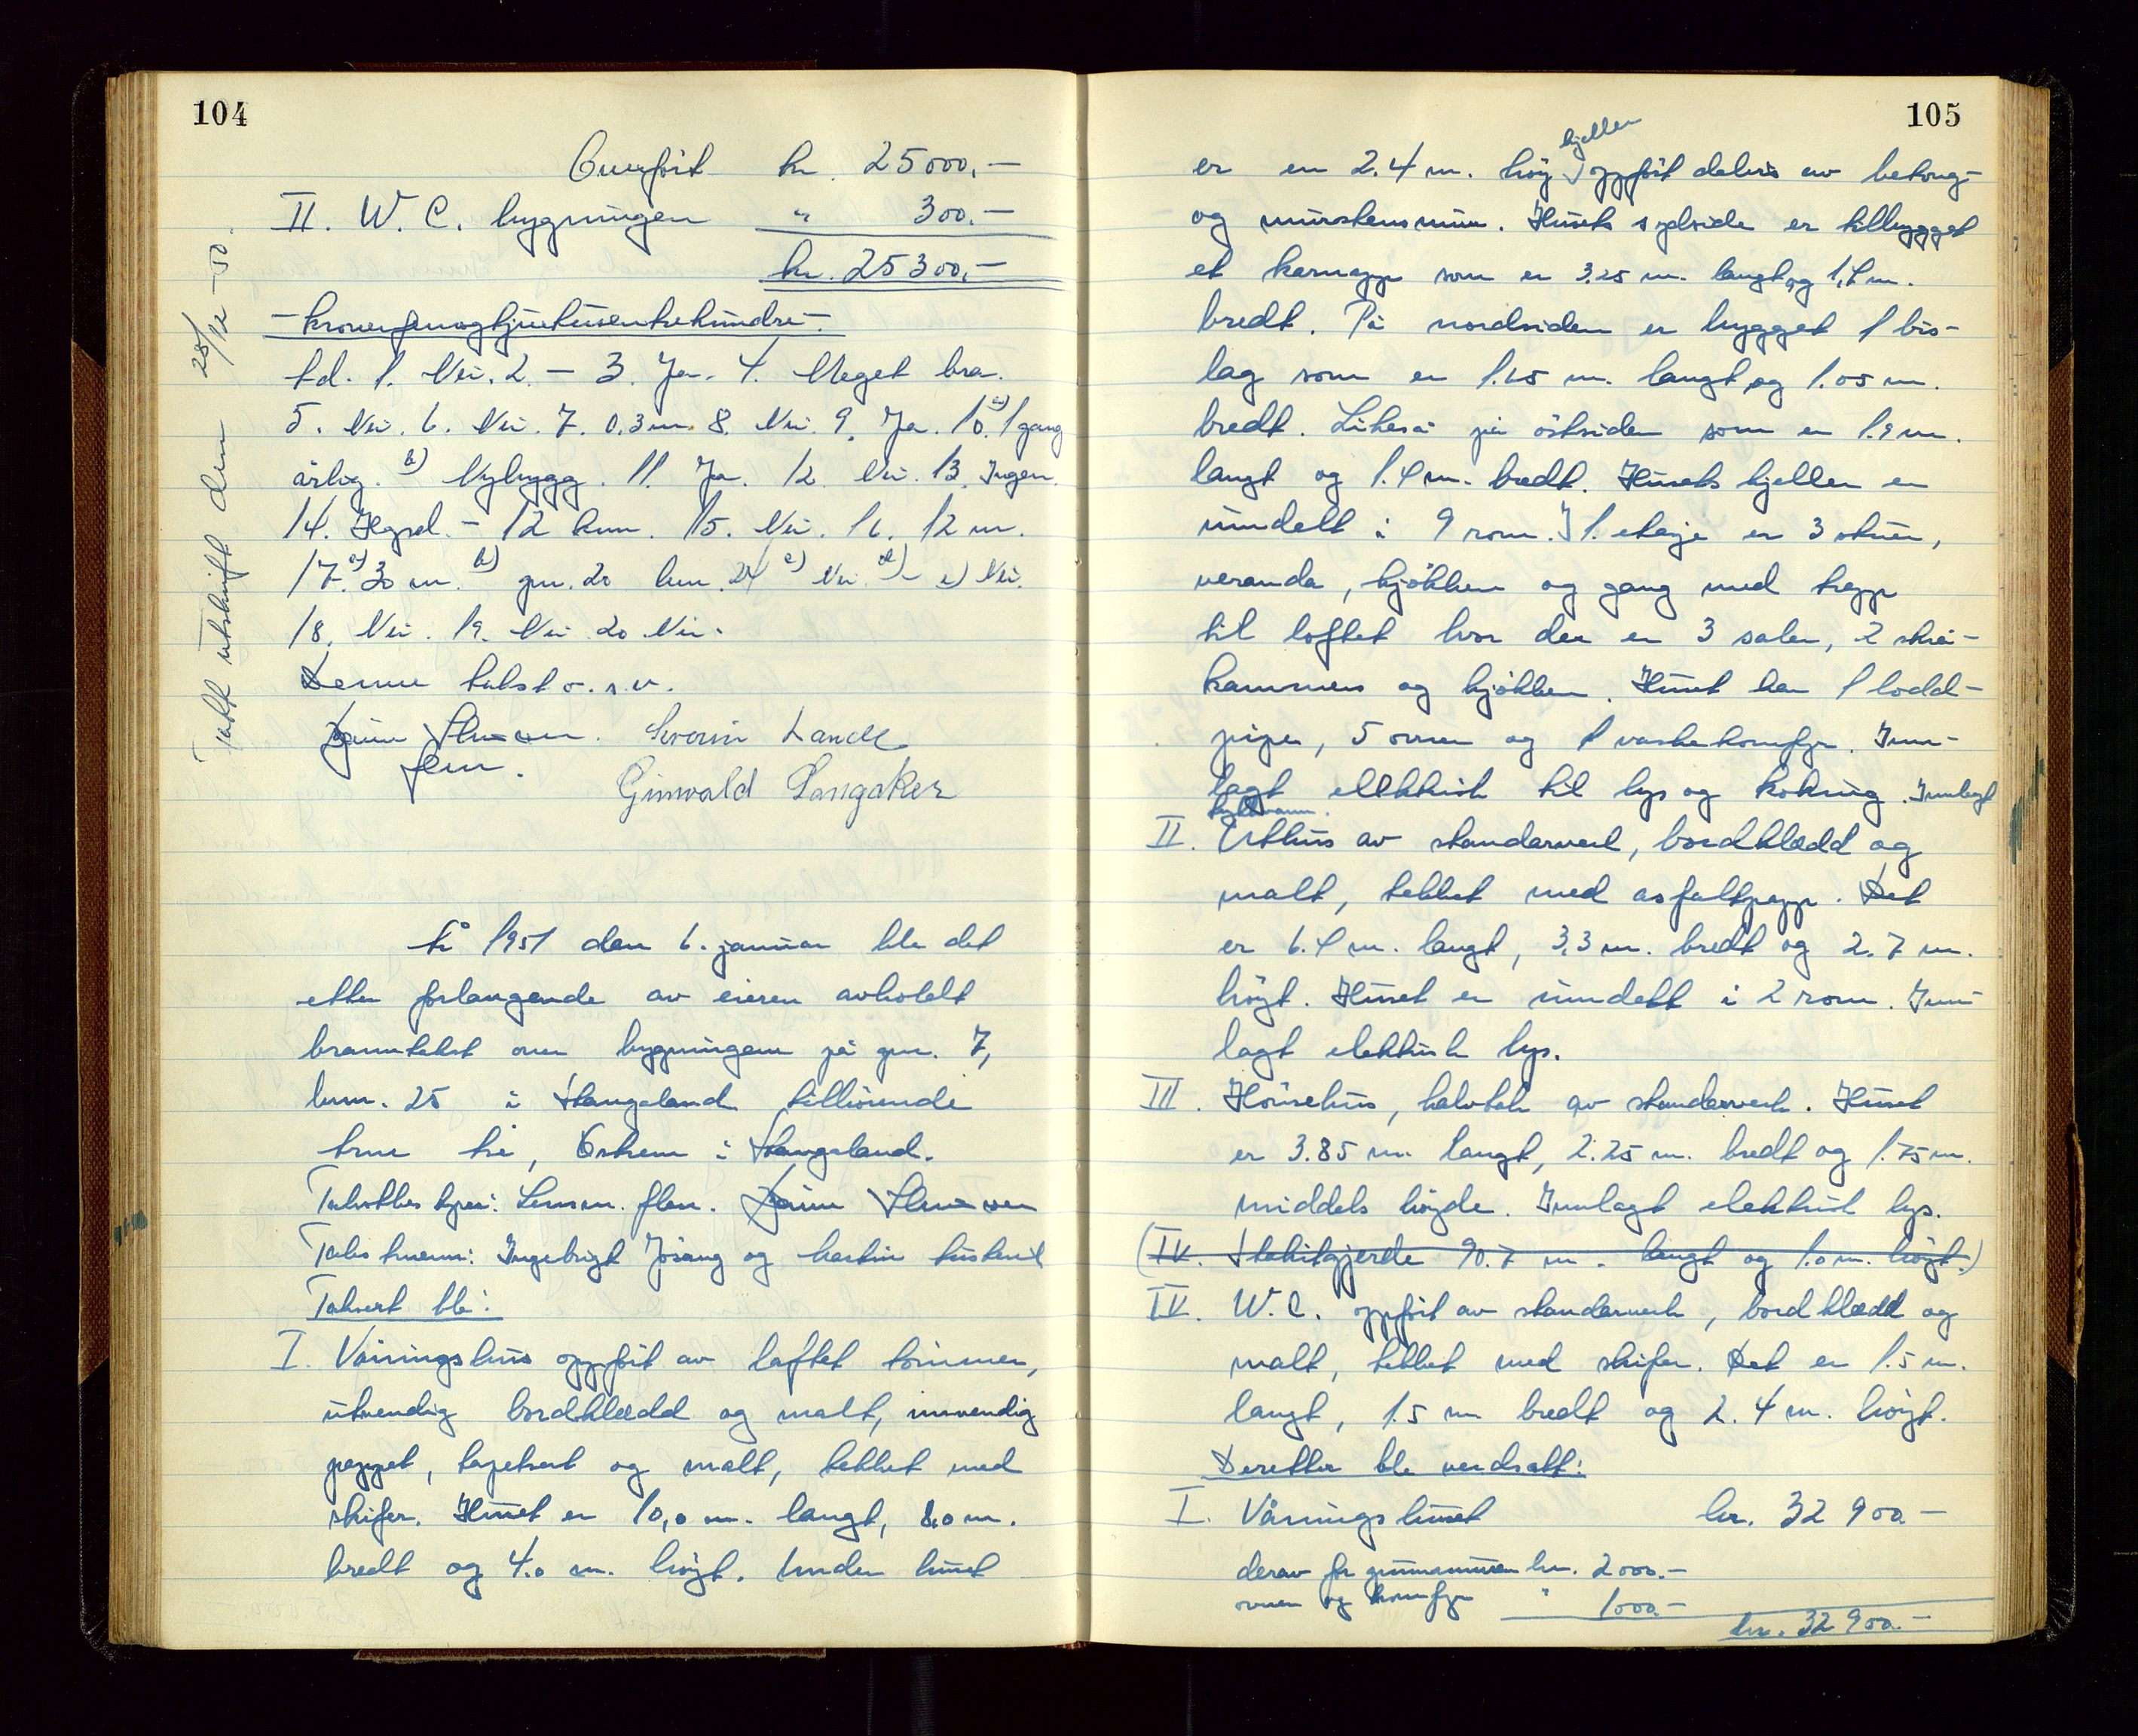 104
Overført kr. 25000.-
II. W. C. bygningen " 300.-
kr. 25300.-
- kronerfemogtjuetusentrehundre -
td. 1. Nei. 2. - 3. Ja. 4. Meget bra.
5. Nei. 6. Nei. 7. 0.3 m. 8. Nei. 9. Ja. 10. a) 1 gang
årlig. b) Nybygg. 11. Ja. 12. Nei. 13. Ingen.
14. Hgsd. - 12 km. 15. Nei. 16. 12 m.
17. a) 30 m. b) gnr. 20 bnr. 24 c) Nei d) - e) Nei.
18. Nei. 19. Nei 20 Nei.
Denne takst o.s.v.
Severin Lande
flm.
Gunvald Langaker
Tatt utskrift den 28/12-50.
År 1951 den 6. januar ble det
etter forlangende av eieren avholdt
branntakst over bygningene på gnr. 7,
bnr. 25 i Stangeland tilhørende
Stangeland.
Takstbestyrer: Lensm. flm.
Takstmenn: Ingebrigt Jösang og
Taksert ble:
I. Våningshus oppført av laftet tømmer,
utvendig bordklædd og malt, innvendig
pappet, tapetsert og malt, tekket med
skifer. Huset er 10,0 m. langt, 8.0 m.
bredt og 4.0 m. høyt. Under huset
105
er en 2.4 m. høy kjeller oppført delvis av betong-
og murstensmur. Husets sydside er tilbygget
et karnapp som er 3.25 m. langt og 1,4 m.
bredt. På nordsiden er bygget 1 bis-
lag som er 1.65 m. langt og 1.05 m.
bredt. Likeså på østsiden som er 1.9 m.
langt og 1.4 m. bredt. Husets kjeller er
inndelt i 9 rom. I 1. etasje er 3 stuer,
veranda, kjøkken og gang med trapp
til loftet hvor der er 3 saler, 2 skrå-
kammers og kjøkken. Huset har 1 lodd-
pipe, 5 ovner og 1 vaskekomfyr. Inn-
lagt elektrisk til lys og koking. Innlagt
II. Uthus av standerverk, bordklædd og
malt, tekket med asfaltpapp. Det
er 6.4 m. langt, 3.3 m. bredt og 2.7 m.
høyt. Huset er inndelt i 2 rom. Inn-
lagt elektrisk lys.
III. Hönsehus, halvtak av standerverk. Huset
er 3.85 m. langt, 2.25 m. bredt og 1.75 m.
middels høyde. Innlagt elektrisk lys.
(IV. Stakitgjerde 90.7 m. langt og 1.0 m. høyt.)
IV. W.C. oppført av standerverk, bordklædd og
malt, tekket med skifer. Det er 1.5 m.
langt, 1.5 m bredt og 2.4 m. høyt.
Deretter ble verdsatt:
I. Våningshuset kr. 32 900.-
derav for grunnmuren kr. 2000.-
ovner og komfyr " 1000.-
kr. 32 900.-